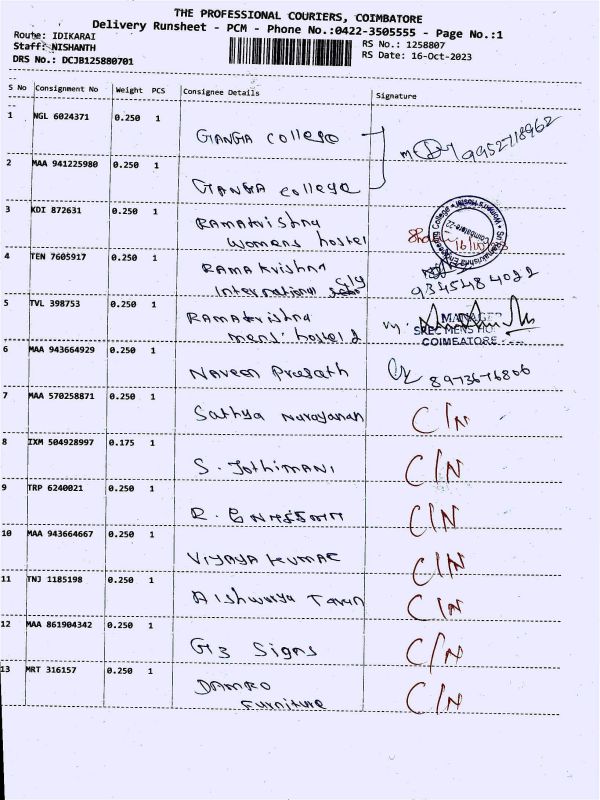 THE PROFESSIONAL COURIERS, COIMBATORE
Delivery Runsheet - PCM - Phone No.:0422-3505555 - Page No.:1
Route: IDIKARAI
RS No.: 1258807
Staff: NISHANTH
RS Date: 16-Oct-2023
DRS No.: DCJB125880701
S No Consignment No Weight PCS Consignee Details Signature
1 NGL 6024371 0.250 1
GANGA college
9952718962
2 MAA 941225980 0.250 1
GANGA college
3 KDI 872631 0.250 1
Ramakrishna
womens hostel
16/10/23
4 TEN 7605917 0.250 1
RAMAKrishna
International
9345484022
5 TVL 398753 0.250 1
RAMAKrishna
mens hostel 2
MANAGER
SREC MENS HO
COIMBATORE
6 MAA 943664929 0.250 1
Naveen Prasath
8973676806
7 MAA 570258871 0.250 1
Sathya Narayanan
C/N
8 IXM 504928997 0.175 1
S. JothiMANI
C/N
9 TRP 6240021 0.250 1
R.
C/N
10 MAA 943664667 0.250 1
VIJAYA KUMAR
C/N
11 TNJ 1185198 0.250 1
Aishwarya Tarun
C/N
12 MAA 861904342 0.250 1
G3 Signs
C/N
13 MRT 316157 0.250 1
DAMRO
Furniture
C/N